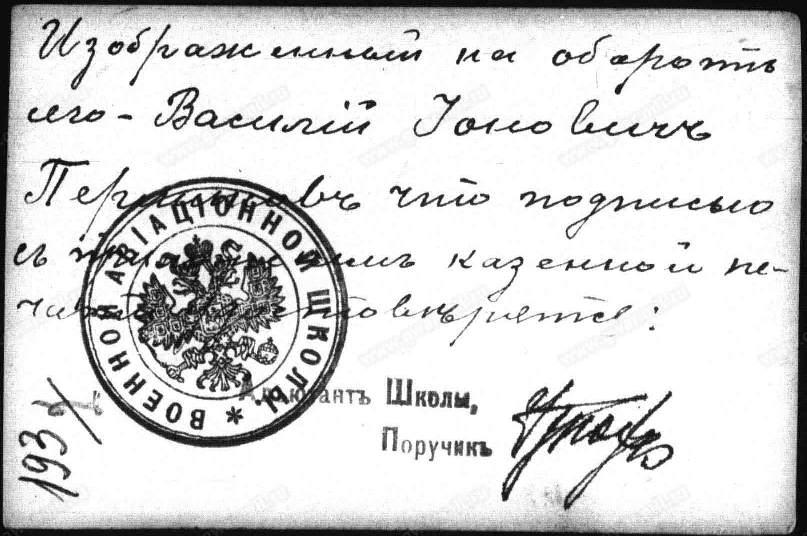 Изображенный на оборотѣ
сего - Василій Іоновичъ
что подписью
съ казенной пе-
чати удостовѣряется:
ВОЕННОЙ АВІАЦІОННОЙ ШКОЛЫ. *
Адъютантъ Школы,
Поручикъ
193